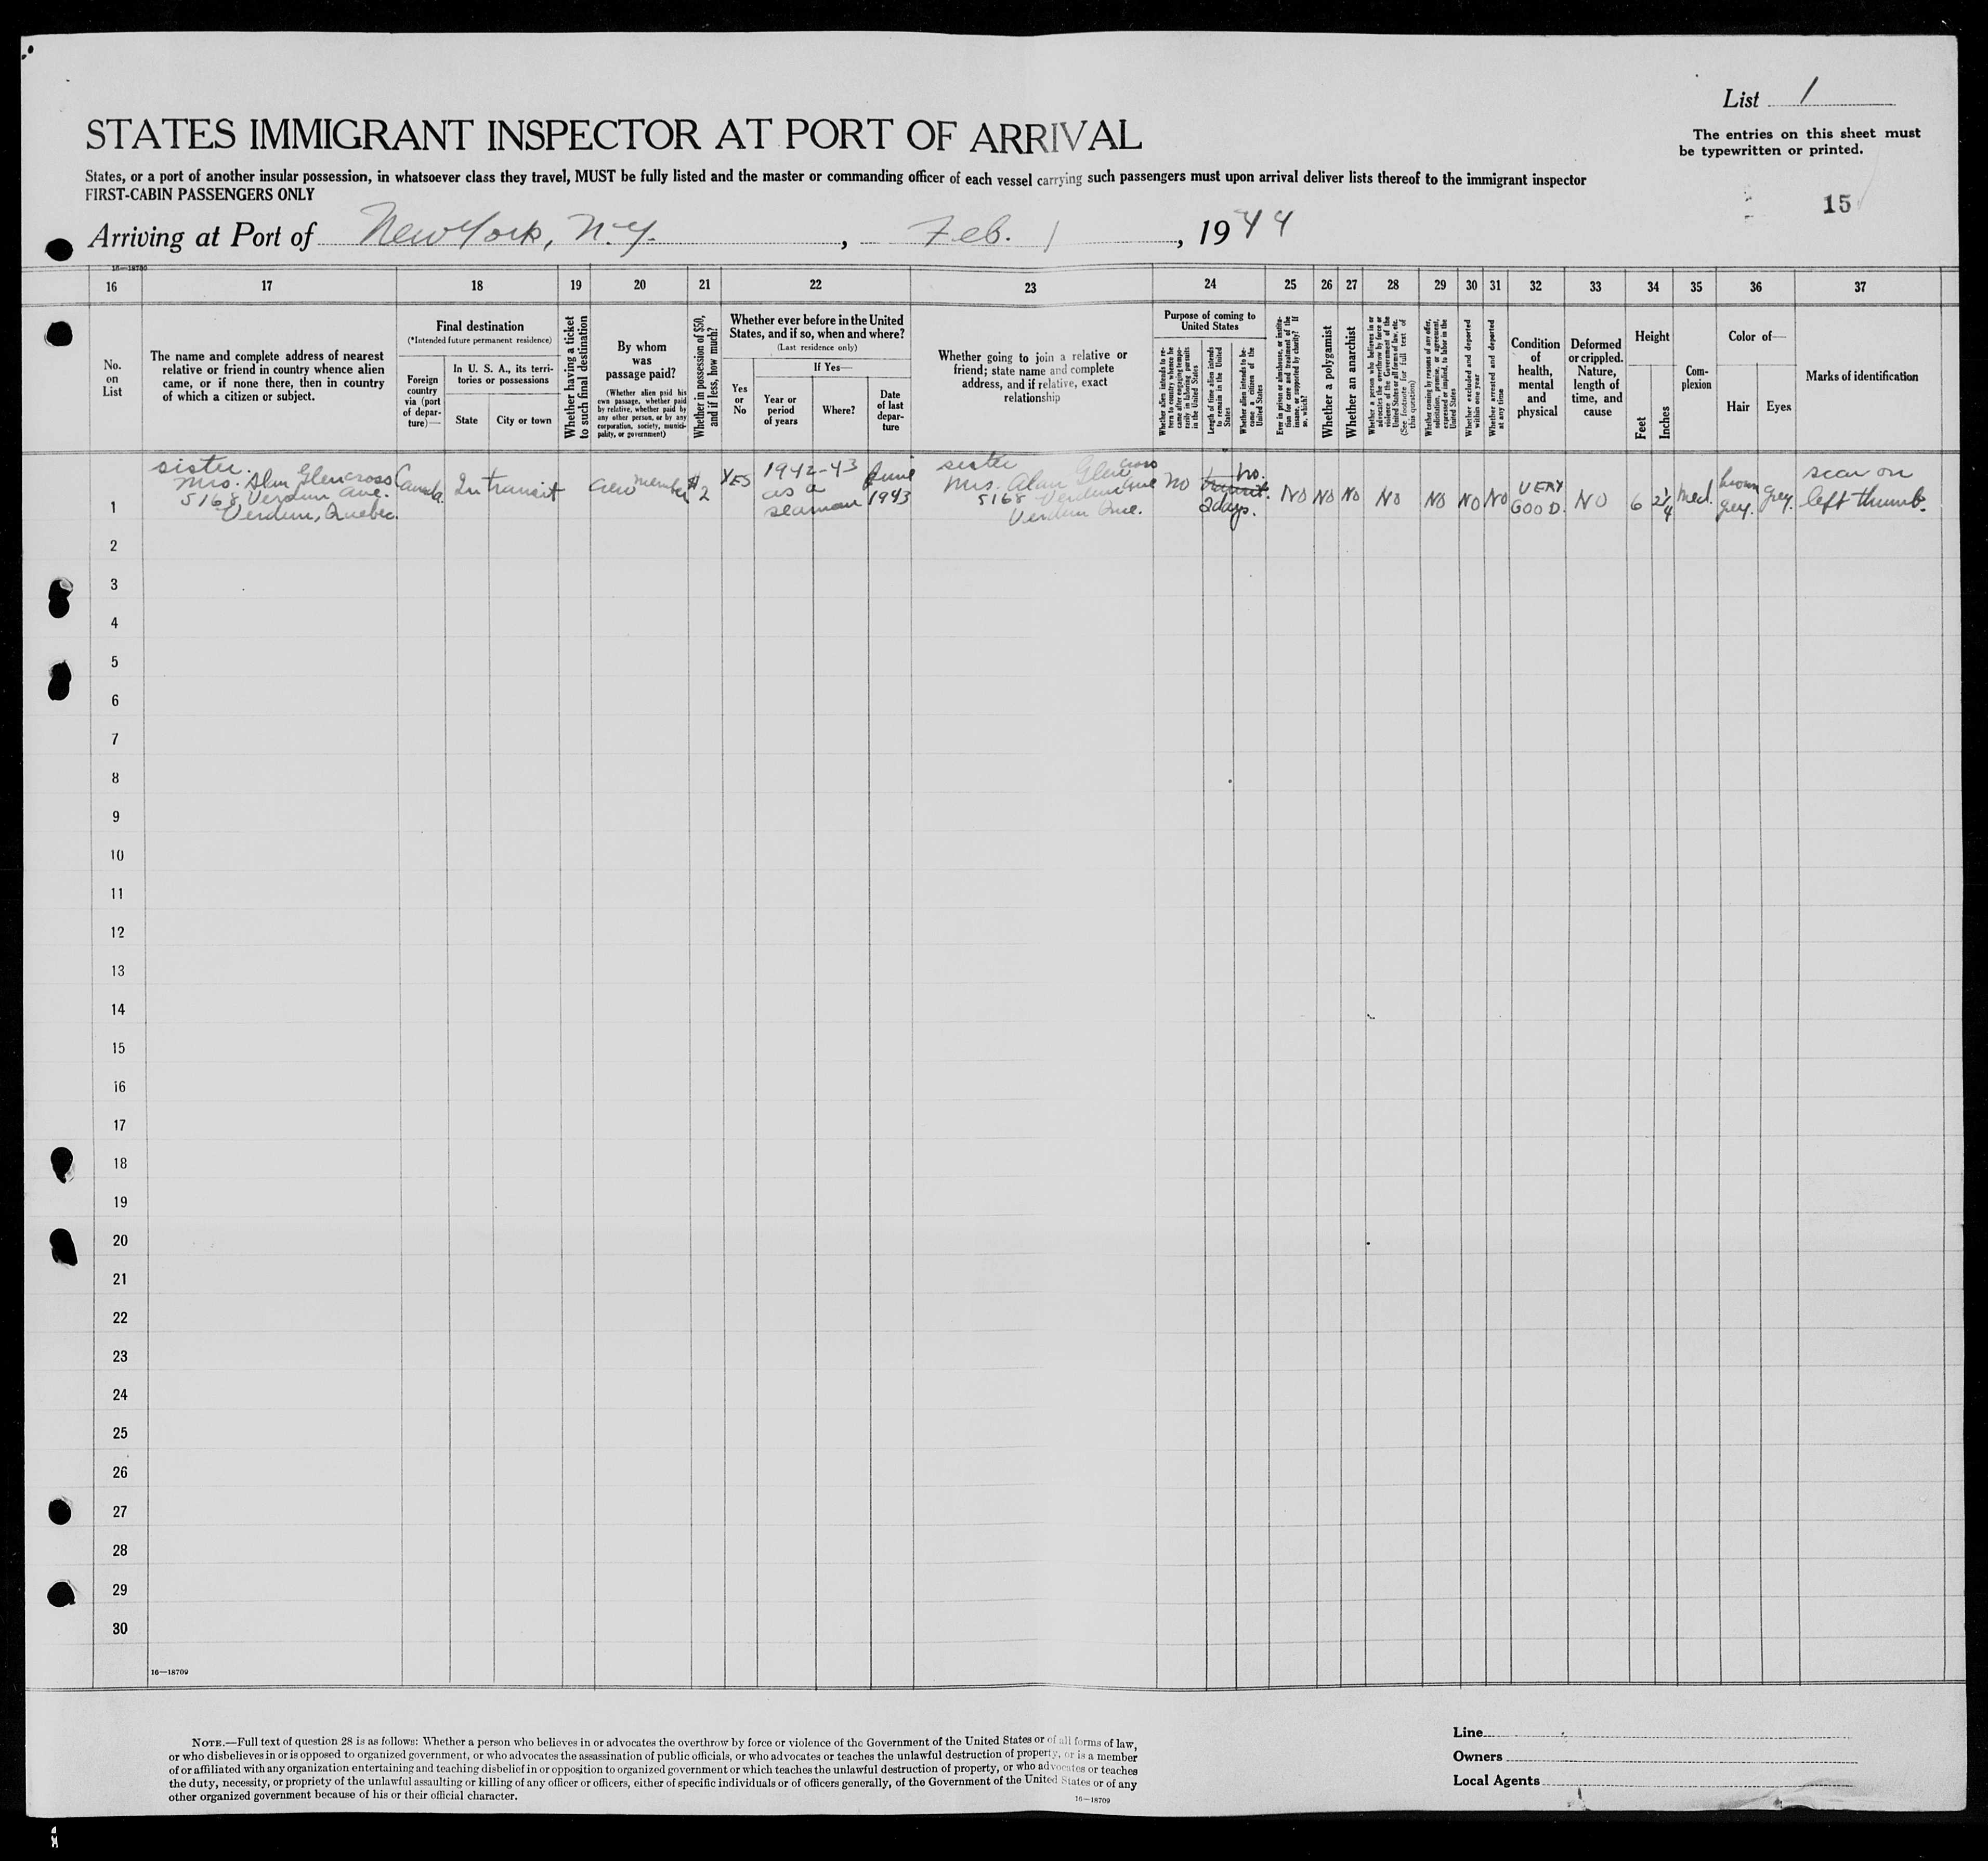 List 1
The entries on this sheet must
be typewritten or printed.
STATES IMMIGRANT INSPECTOR AT PORT OF ARRIVAL
States, or a port of another insular possession, in whatsoever class they travel, MUST be fully listed and the master or commanding officer of each vessel carrying such passengers must upon arrival deliver lists thereof to the immigrant inspector
FIRST-CABIN PASSENGERS ONLY
15
Arriving at Port of New York, N.Y. , Feb. 1 , 1944
16—18709
16 17 18 19 20 21 22 23 24 25 26 27 28 29 30 31 32 33 34 35 36 37
No.
on
List
The name and complete address of nearest
relative or friend in country whence alien
came, or if none there, then in country
of which a citizen or subject.
Final destination
(*Intended future permanent residence)
Foreign
country
via (port
of depar-
ture)—
In U. S. A., its terri-
tories or possessions
State
City or town
Whether having a ticket
to such final destination
By whom
was
passage paid?
(Whether alien paid his
own passage, whether paid
by relative, whether paid by
any other person, or by any
corporation, society, munici-
pality, or government)
Whether in possession of $50,
and if less, how much?
Whether ever before in the United
States, and if so, when and where?
(Last residence only)
Yes
or
No
If Yes—
Year or
period
of years
Where?
Date
of last
depar-
ture
Whether going to join a relative or
friend; state name and complete
address, and if relative, exact
relationship
Purpose of coming to
United States
Whether alien intends to re-
turn to country whence he
came after engaging tempo-
rarily in laboring pursuits
in the United States
Length of time alien intends
to remain in the United
States
Whether alien intends to be-
come a citizen of the
United States
Ever in prison or almshouse, or institu-
tion for care and treatment of the
insane, or supported by charity? If
so, which?
Whether a polygamist
Whether an anarchist
Whether a person who believes in or
advocates the overthrow by force or
violence of the Government of the
United States or all forms of law, etc.
(See footnote for full text of
this question)
Whether coming by reasons of any offer,
solicitation, promise, or agreement,
expressed or implied, to labor in the
United States
Whether excluded and deported
within one year
Whether arrested and deported
at any time
Condition
of
health,
mental
and
physical
Deformed
or crippled.
Nature,
length of
time, and
cause
Height
Feet
Inches
Com-
plexion
Color of—
Hair
Eyes
Marks of identification
1
sister.
Mrs. Alan Glencross
5168 Verdun Ave.
Verdun, Quebec.
Canada.
In transit
crew member
$2
YES
1942-43
as a
seaman
June
1943
sister
Mrs. Alan Glencross
5168 Verdun Ave
Verdun Que.
no
transit.
2 days.
no.
NO
NO
NO
NO
NO
NO
NO
VERY
GOOD.
NO
6
2 1/4
med.
brown
grey.
grey.
scar on
left thumb.
2
3
4
5
6
7
8
9
10
11
12
13
14
15
16
17
18
19
20
21
22
23
24
25
26
27
28
29
30
16—18709
NOTE.—Full text of question 28 is as follows: Whether a person who believes in or advocates the overthrow by force or violence of the Government of the United States or of all forms of law,
or who disbelieves in or is opposed to organized government, or who advocates the assassination of public officials, or who advocates or teaches the unlawful destruction of property, or is a member
of or affiliated with any organization entertaining and teaching disbelief in or opposition to organized government or which teaches the unlawful destruction of property, or who advocates or teaches
the duty, necessity, or propriety of the unlawful assaulting or killing of any officer or officers, either of specific individuals or of officers generally, of the Government of the United States or of any
other organized government because of his or their official character.
16—18709
Line
Owners
Local Agents